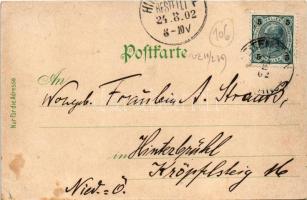 BESTELLT
24.8.02
8-10V
106
Postkarte
An
Wohlgeb. Fräulein A. Strauß,
in Hinterbrühl
Kröpfelsteig 16
Nied.-Ö.
Nur für die Adresse
5 5